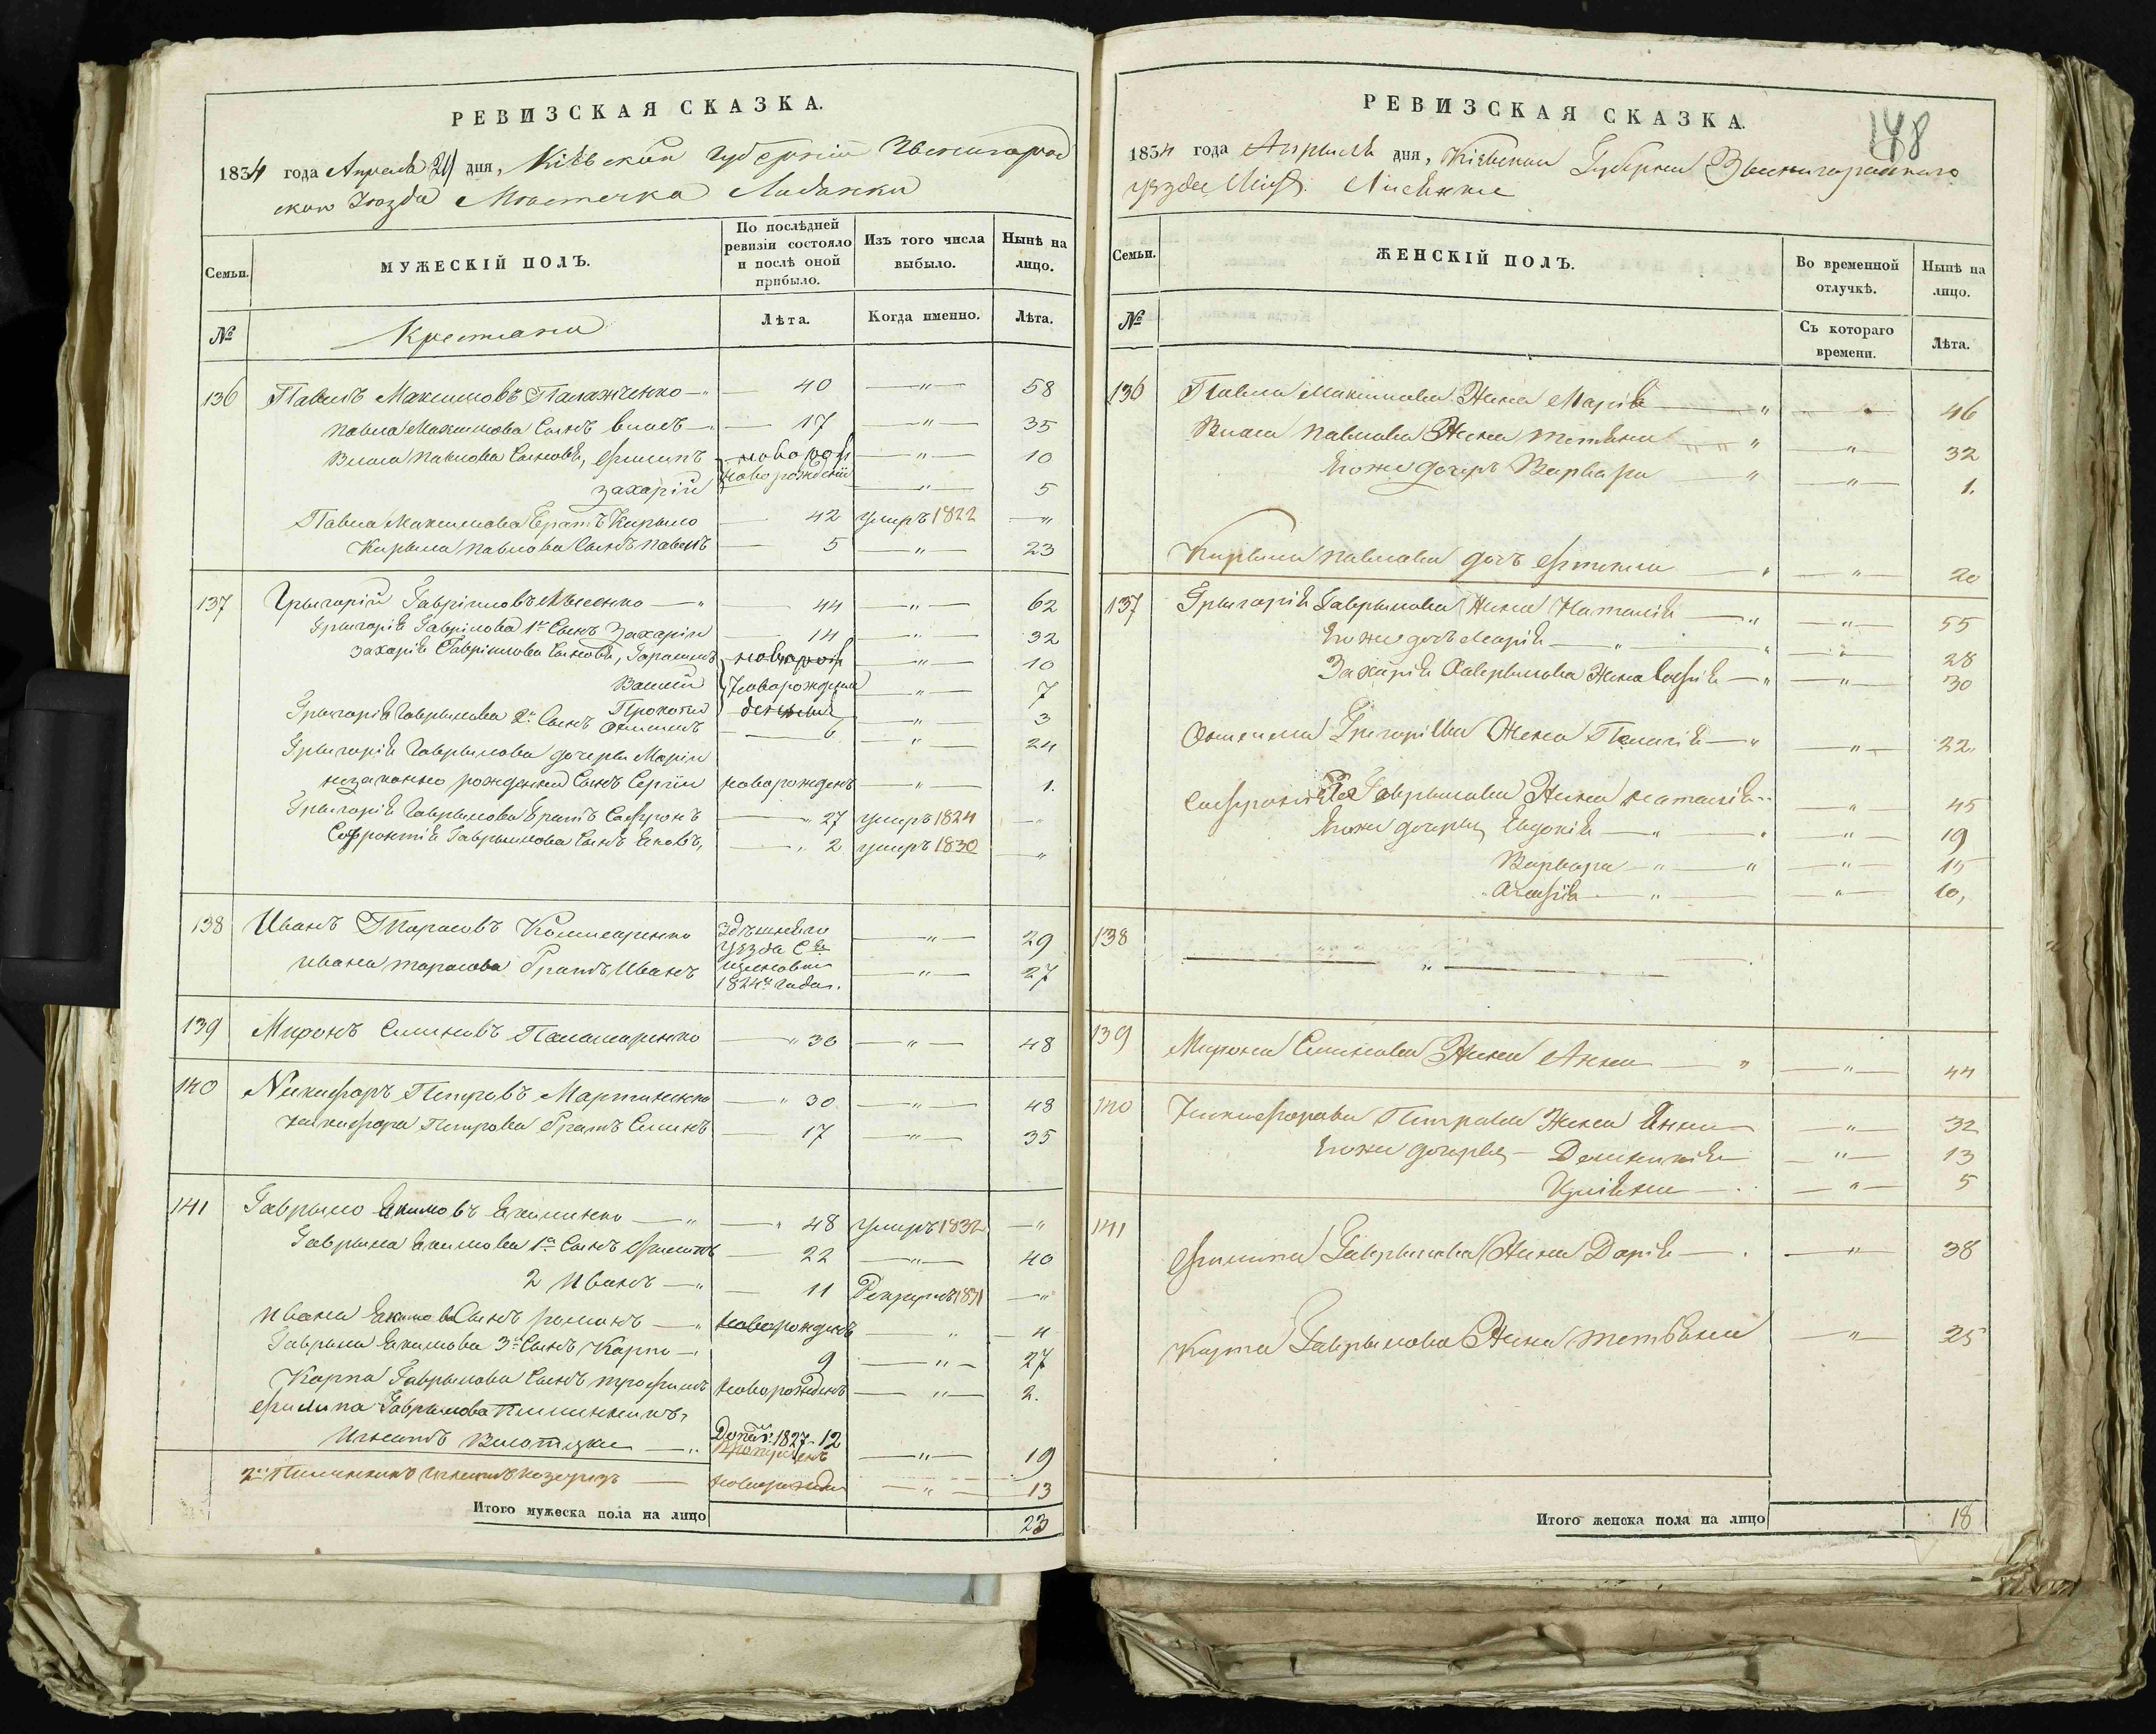 РЕВИЗСКАЯ СКАЗКА.
1834 года Апреля 20 дня, Кіевской Губерніи Звенигород
ского Уезда Местечка Лисянки
Семьи.
МУЖЕСКІЙ ПОЛЪ.
По послѣдней ревизіи состояло и послѣ оной прибыло.
Изъ того числа выбыло.
Нынѣ на лицо.
№
Крестьяни
Лѣта.
Когда именно.
Лѣта.
136 Павелъ Максимовъ Паламженко 40 — " — 58
Павла Максимова Сынъ Власъ 17 — " — 35
Власа Павлова Сыновья, Филипъ новорож — " — 10
Захарій новорожденій — " — 5
Павла Максимова Братъ Кирыло 42 умиръ 1822 — "
Кирыла Павлова Сынъ Павелъ 5 — " — 23
137 Грыгорій Гавріиловъ 44 — " — 62
Грыгорія Гаврілова 1й Сынъ Захарій 14 — " — 32
Захарія Гавріилова Сыновья, Гарасимъ новорож — " — 10
Васили новорожденіи — " — 7
Прокопій — " — 3
Грыгорія Гаврылова 2й Сынъ 6 — " — 24
Грыгорія Гаврылова дочеры Маріи
незаконно рожденній Сынъ Сергій новорожденъ — " — 1.
Грыгорія Гаврылова Братъ Сафронъ 27 умиръ 1824 — "
Софронтія Гаврылова Сынъ Яковъ, 2 умиръ 1830 — "
138 Иванъ Тарасовъ Коммсаренко Здѣшнего — " — 29
уѣзда
Ивана Тарасова Братъ Иванъ — " — 27
1824го Года.
139 Миронъ Симновъ Паламаренко 30 — " — 48
140 Никифоръ Петровъ Мартиненко 30 — " — 48
Никифора Петрова Братъ Симинъ 17 — " — 35
141 Гаврыло Якимовъ Якименко 48 умиръ 1832 — "
Гаврыла Якимова 1й Сынъ Филипъ 22 — " — 40
2 Иванъ — " 11 Рекрутъ 1831 — "
Ивана Якимова Сынъ Романъ — " новорожденъ — " — 4
Гаврыла Якимова 3й Сынъ Карпо 9 — " — 27
Карпа Гаврылова Сынъ Трофимъ новорожденъ — " — 2.
Филипа Гаврылова племинникъ,
Игнатъ 1827 - 12
пропущенъ — " — 19
2й Племинникъ новорожден — " — 13
Итого мужеска пола на лицо 23
РЕВИЗСКАЯ СКАЗКА.
148
1834 года Апрыля дня, Кіевской Губерніи Звенигородского
уѣзда Мѣст. Лисянки
Семьи.
ЖЕНСКІЙ ПОЛЪ.
Во временной отлучкѣ.
Нынѣ на лицо.
№
Съ котораго времени.
Лѣта.
136 Павла Максимова Жена Марія — " 46
Власа Павлова Жена Тетяна — " — 32
Егоже дочеръ Варвара — " — 1.
Кирыла Павлова дочъ — " — 20
137 Грыгорія Гаврылова Жена Наталія — " — 55
Егоже дочъ Марія — " — 28
Захарія Гаврылова Жена Софія — " — 30
Грыгоріева Жена Пелагія — " — 22.
Сафронія Гаврылова Жена Наталія — " — 45
Егоже дочеры Евдокія — " — 19
Варвара — " — 15
Агафія — " — 10,
138 — " —
139 Мирона Симнова Жена Анна — " — 44
140 Никифорова Петрова Жена Анна — " — 32
Егоже дочеры — Доминикія — " — 13
Уліяна — " — 5
141
Филипа Гаврылова Жена Дарія — " — 38
Карпа Гаврылова Жена Тетьяна — " — 25
Итого женска пола на лицо 18